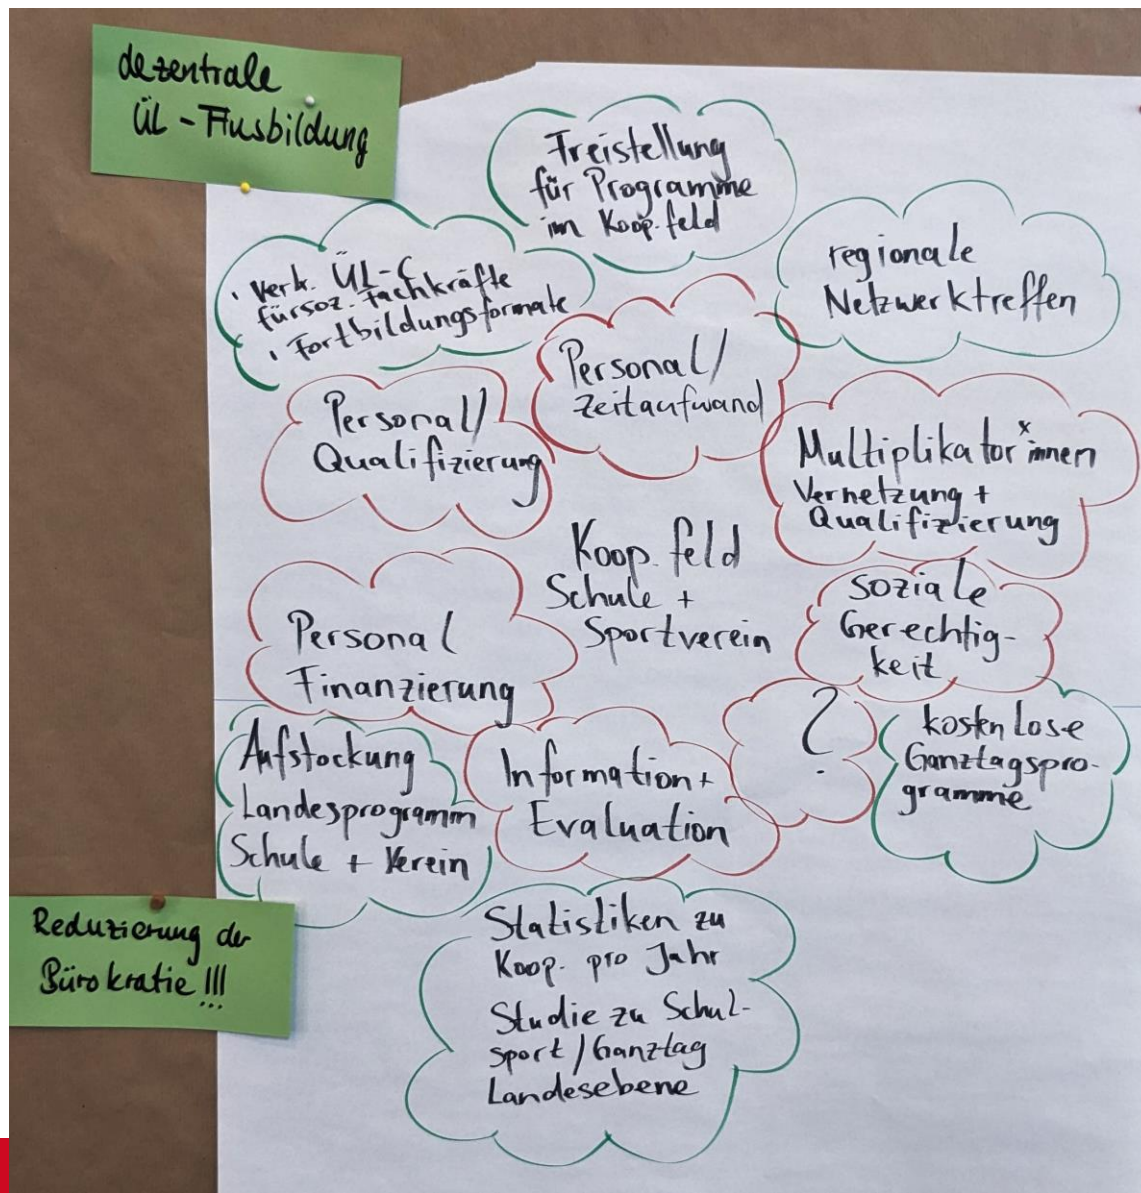 dezentrale
ÜL - Ausbildung
Freistellung
für Programme
im Koop.feld
regionale
Netzwerktreffen
· Verk. ÜL-C
für soz. Fachkräfte
· Fortbildungsformate
Personal/
Zeitaufwand
Personal/
Qualifizierung
Multiplikator*innen
Vernetzung +
Qualifizierung
Koop. feld
Schule +
Sportverein
soziale
Gerechtig-
keit
Personal
Finanzierung
?
kostenlose
Ganztagspro-
gramme
Aufstockung
Landesprogramm
Schule + Verein
Information +
Evaluation
Reduzierung der
Bürokratie!!!
Statistiken zu
Koop. pro Jahr
Studie zu Schul-
sport/Ganztag
Landesebene